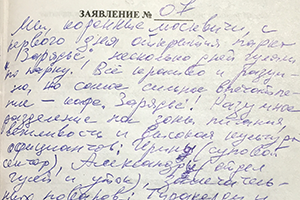 ЗАЯВЛЕНИЕ № 07
Мы коренные москвичи, с
первого дня открытия парка
"Зарядье" несколько дней гуляли
по парку! Всё красиво и разум-
но, но самые сильные впечатле-
ния - кафе. Зарядье! Разумное
разделение на зоны питания
вежливость и высокая культура
официантов: Ирины (суповой
сектор), Александры (отдел
гусей и уток),
ных поваров!